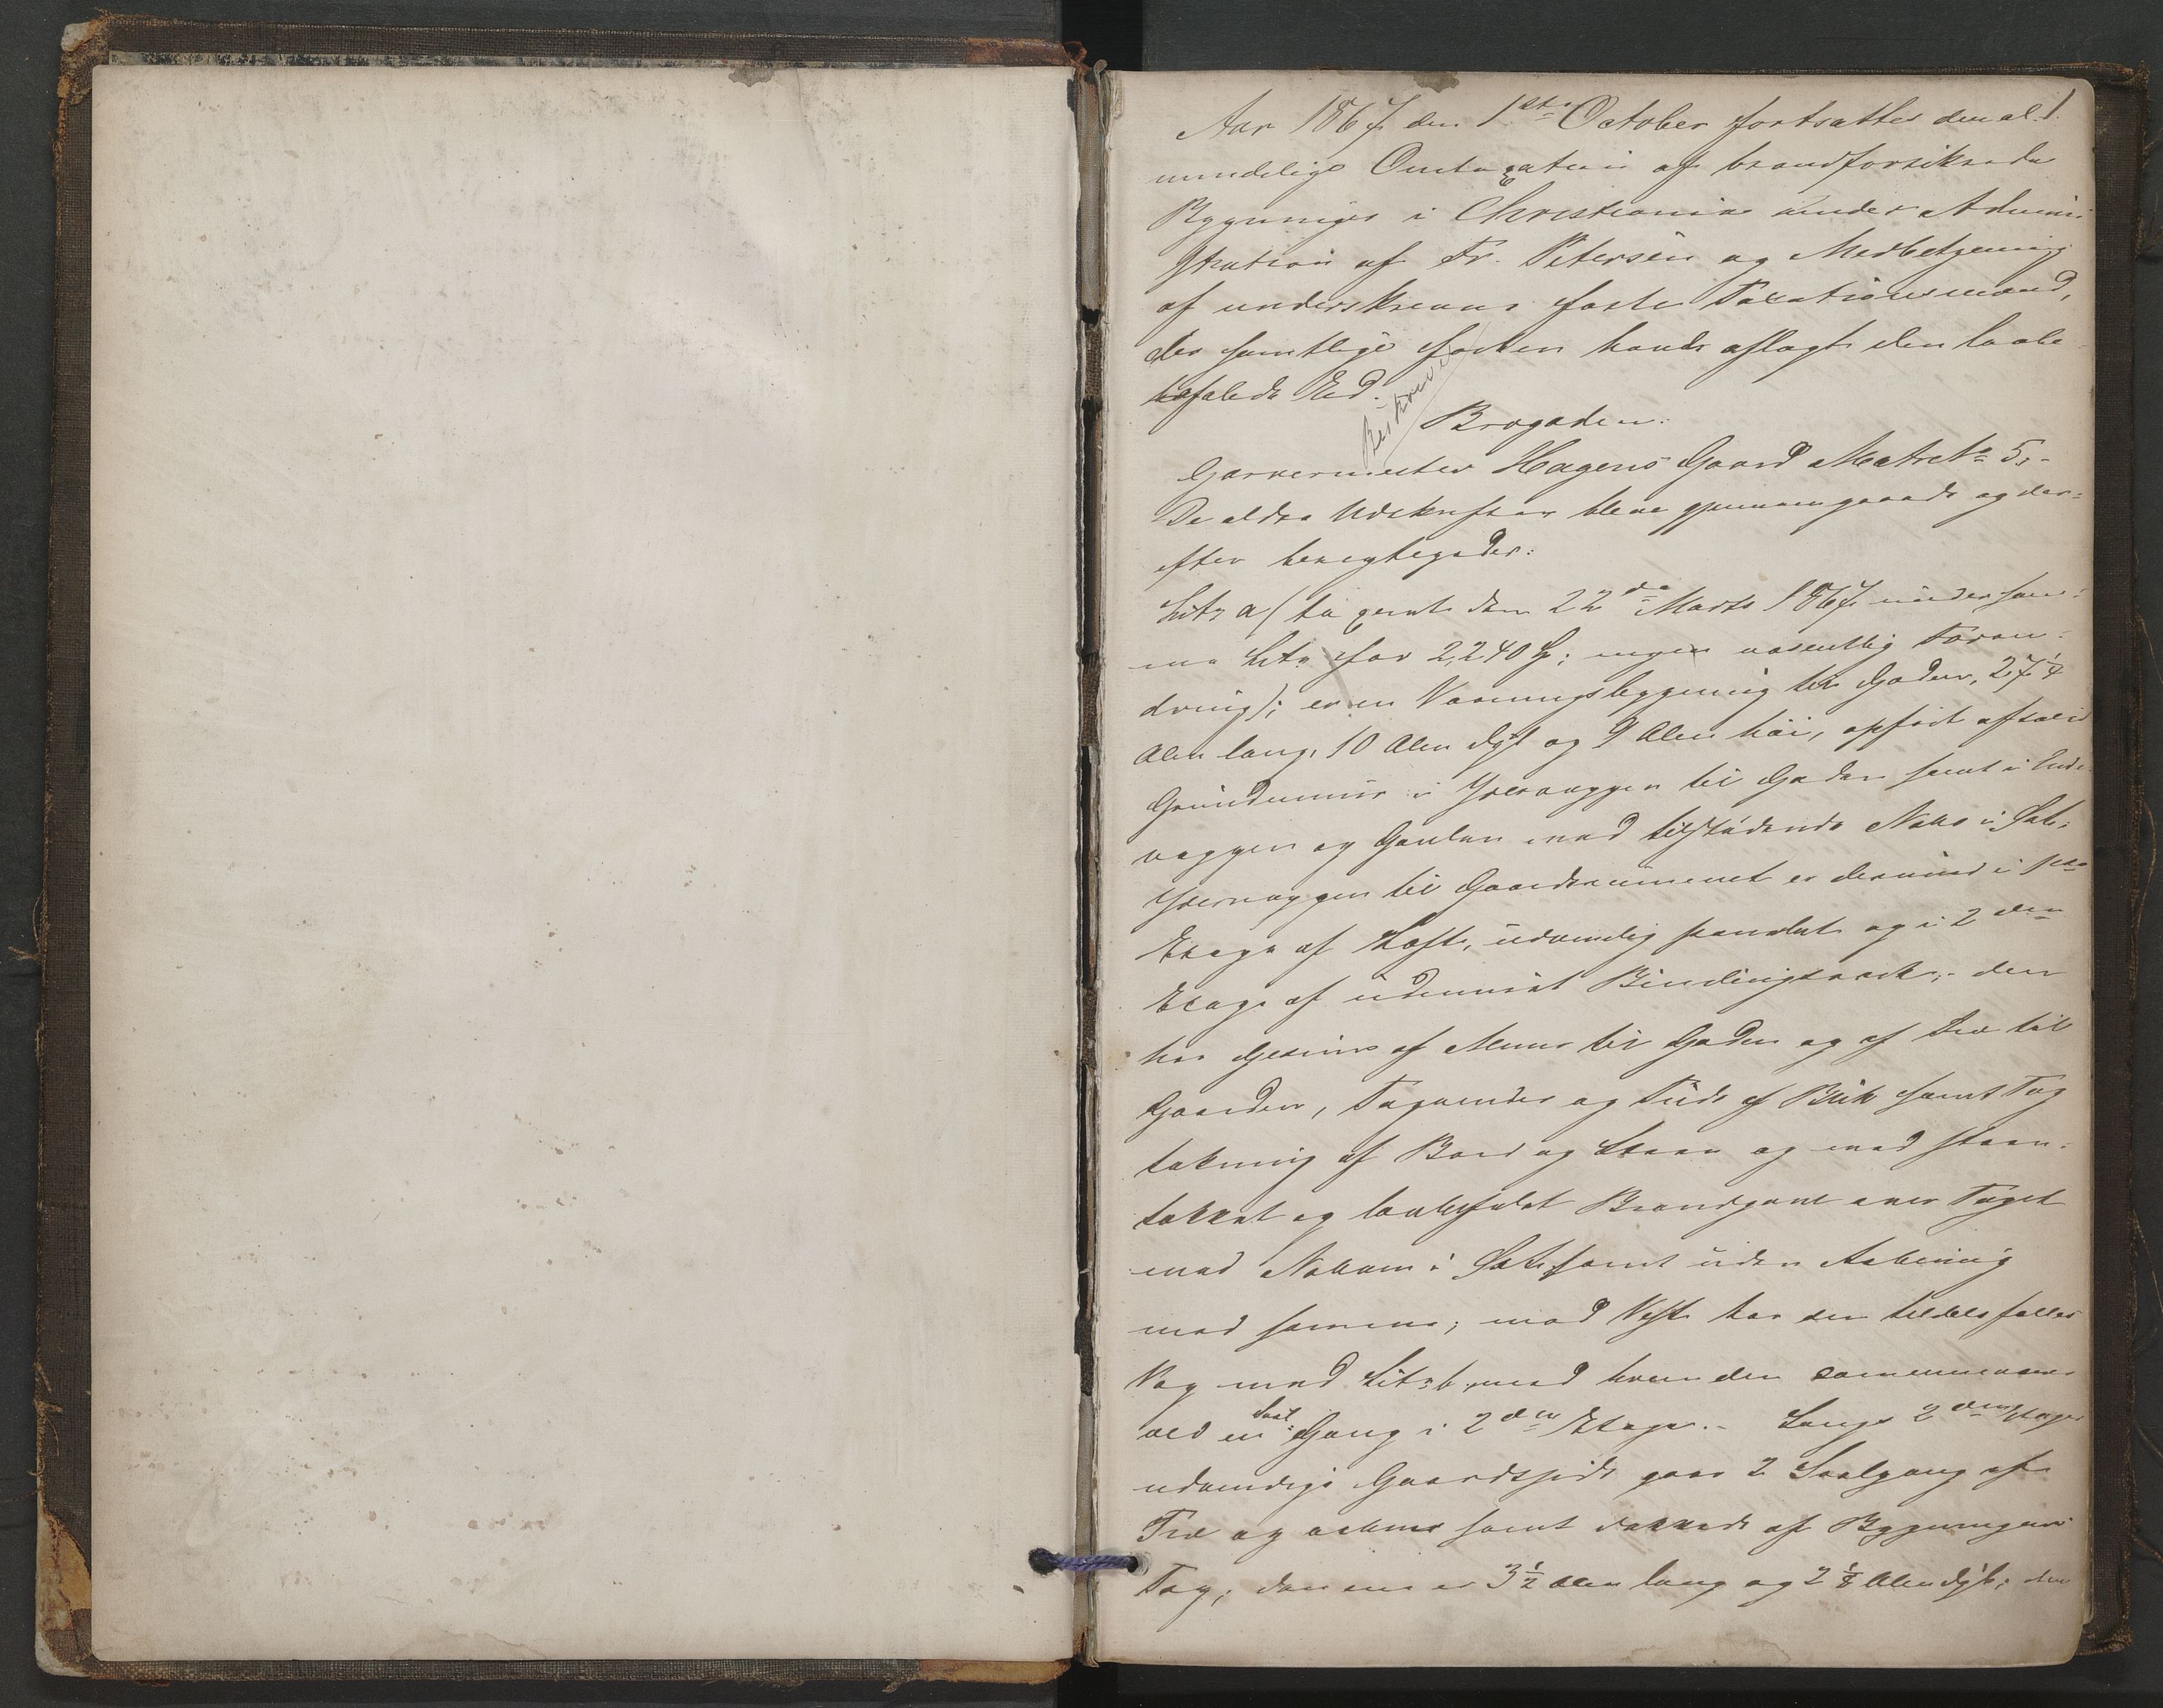 1.
Aar 1867 den 1ste October fortsattes den al-
mindelige Omtaxation af brandforsikrede
Bygninger i Christiania under Admini-
stration af Fr. Petersen og Medbetjening
af underskrevne faste Taxationsmænd,
der samtlige forhen havde aflagt den lovbe-
befalede Ed.
Beskrevet
Brogaden:
Garvermester Hagens Gaard Matr No 5,-
De ældre Udskrifter bleve gjennemgaaede og der-
efter besigtigedes:
Litr a (taxeret den 22de Marts 1867 under sam-
me Litr for 2,240 Sp; ingen væsentlig Foran-
dring); er en Vaaningsbygning til Gaden, 27 1/4
Alen lang, 10 Alen dyb og 9 Alen høi, opført af
Grundmuur i Ydervæggen til Gaden samt i Ende-
væggen og Gavlen mod tilstødende Nabo i
Ydervæggen til Gaardsrummet er derimod i 1ste
Etage af Laft, udvendig panelet og i 2den
Etage af udmuret Bindingsværk; den
har Gesims af Muur til Gaden og af Træ til
Gaarden, Tagrender og af Blik samt Tag
tækning af Bord og Steen og med steen-
tækket og lovbefalet Brandgavl over Taget
mod Naboen i samt uden Aabning
mod samme; mod Vest har den tildels fælles
Væg med Litr b, med hvem den
ved en Sval-Gang i 2den Etage.- Langs 2den Etages
udvendige Gaardsside gaar 2 Svalgang af
Træ og aabne samt dækkede af Bygningens
Tag; den ene er 3 1/2 Alen lang og 2 1/8 Alen dyb; den